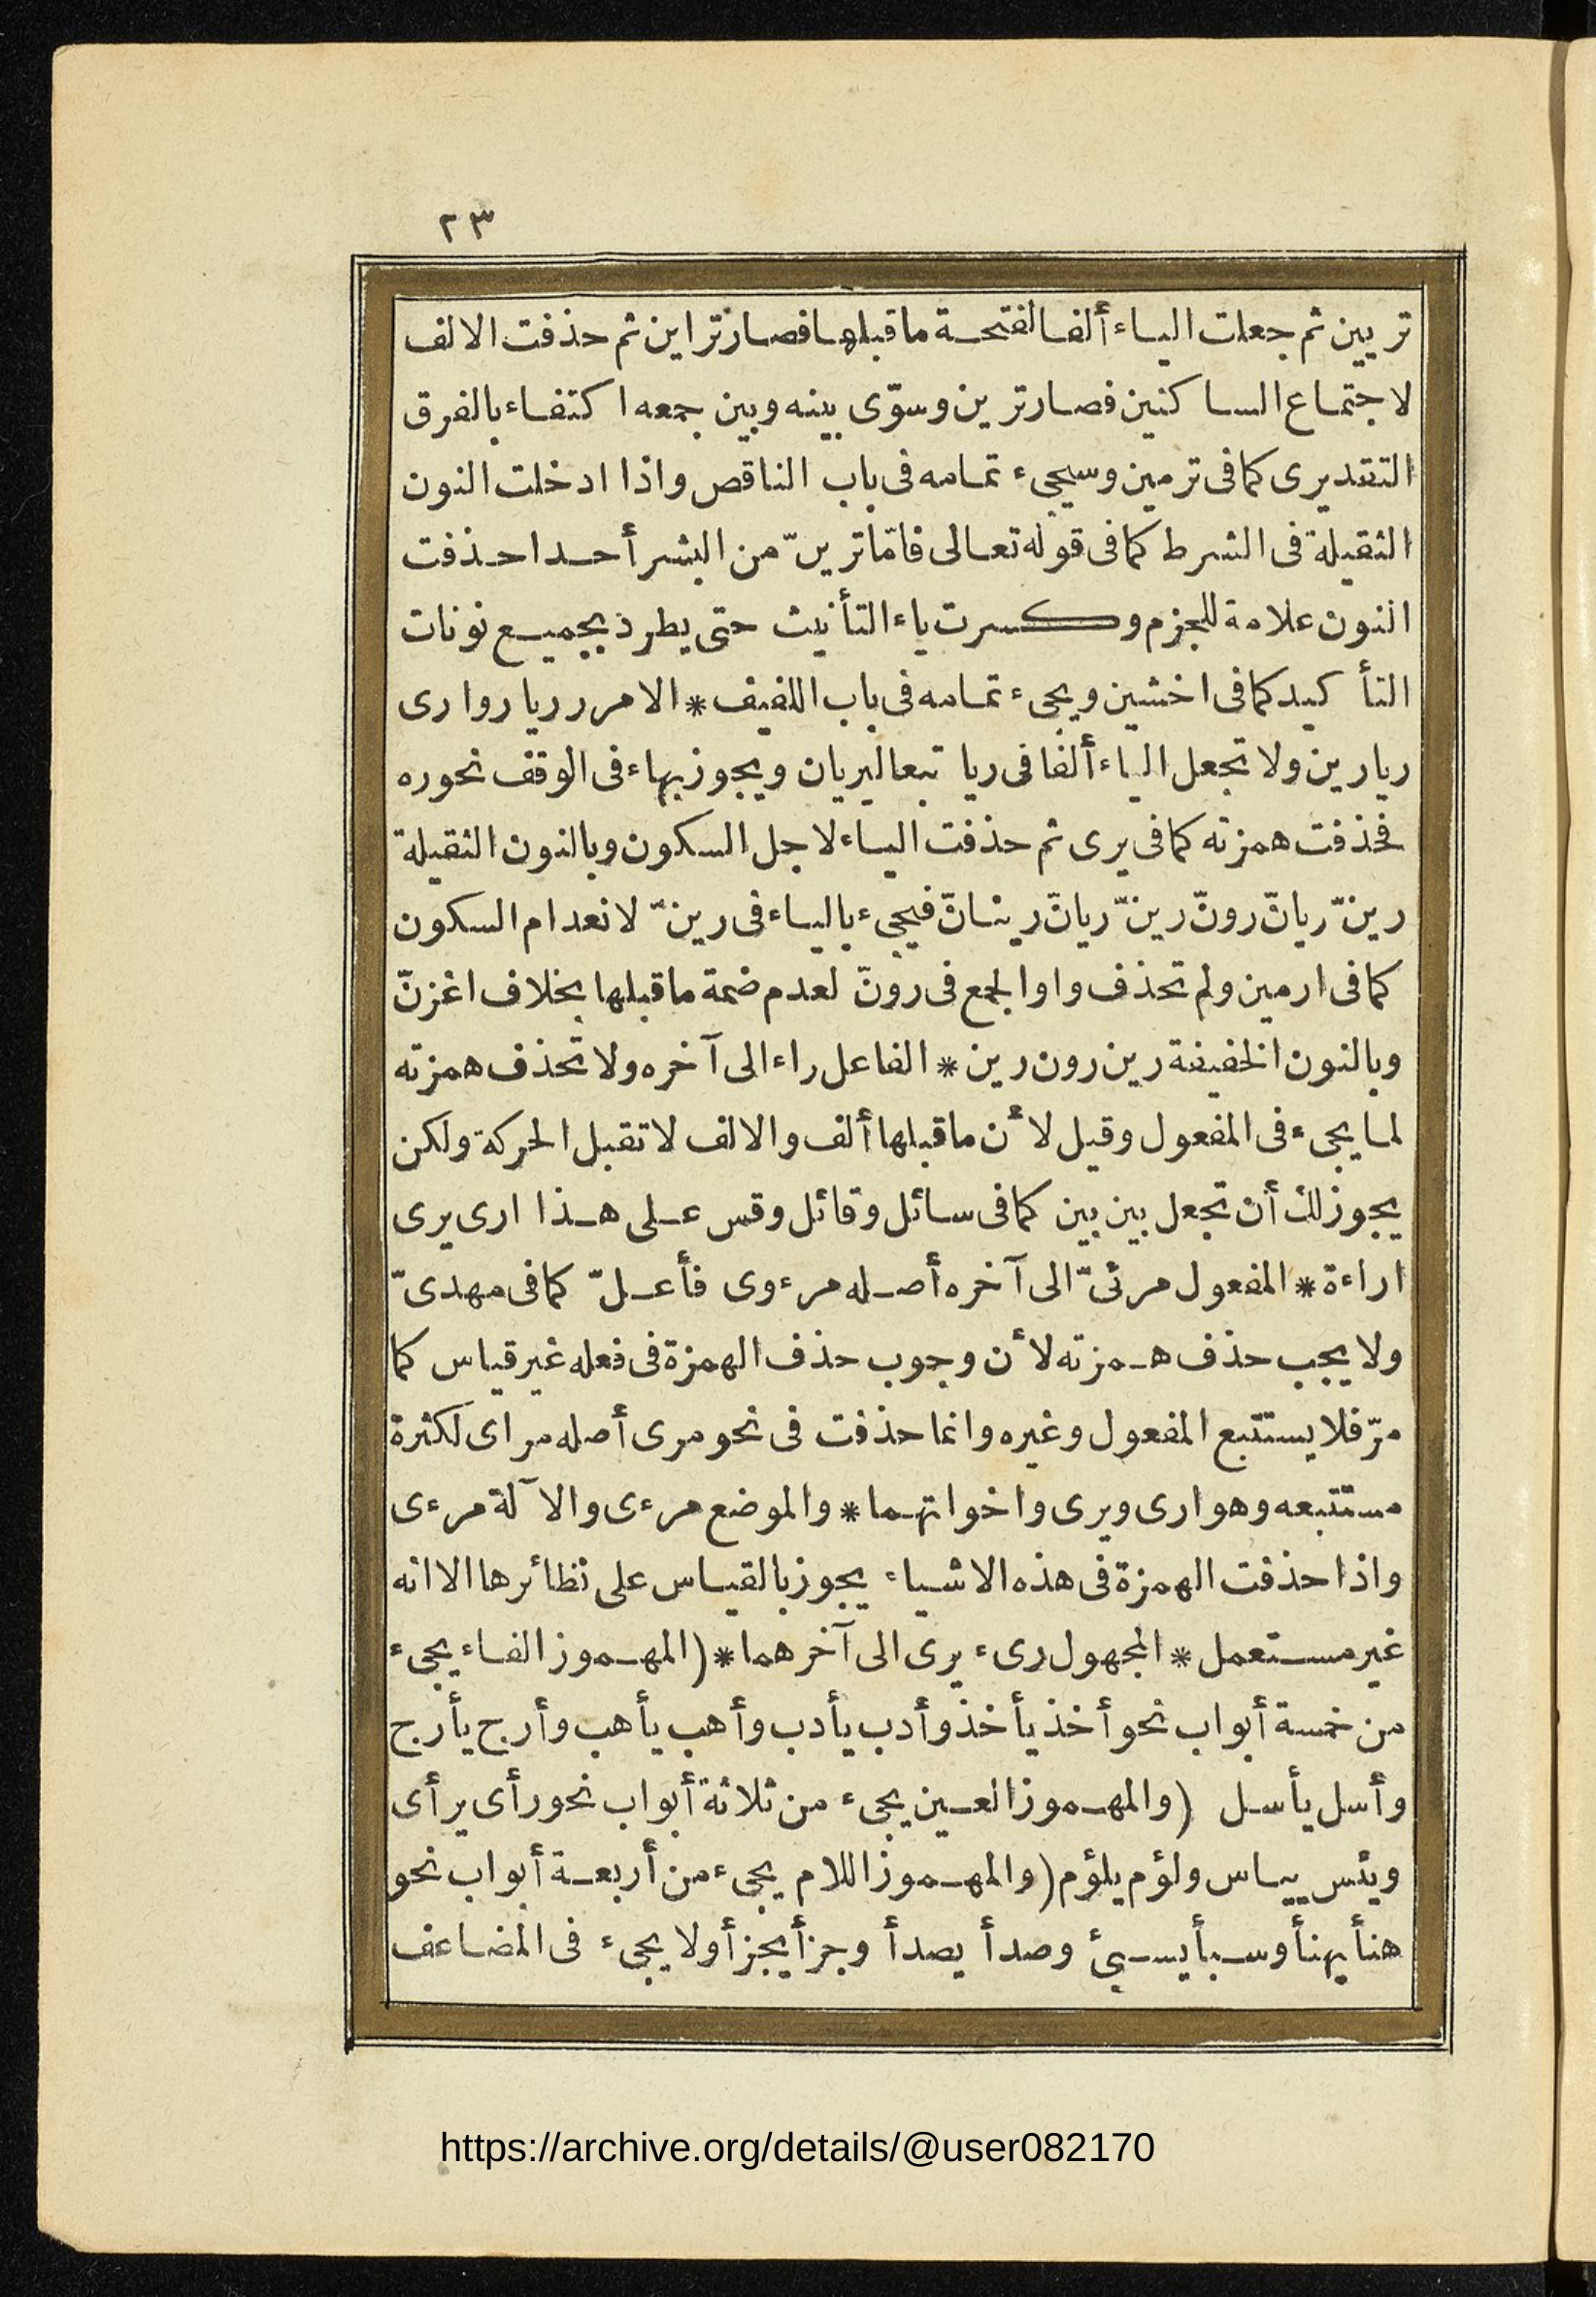 ٢٣
تريين ثم جعلت الياء ألفا لفتحة ماقبلها فصار تراين ثم حذفت الالف
لاجتماع الساكنين فصار ترين وسوّى بينه وبين جمعه اكتفاء بالفرق
التقديرى كما فى ترمين وسيجىء تمامه فى باب الناقص واذا ادخلت النون
الثقيلة فى الشرط كما فى قوله تعالى فامّا ترينّ من البشر أحدا حذفت
النون علامة للجزم وكسرت ياء التأنيث حتى يطرد بجميع نونات
التأكيد كما فى اخشين ويجىء تمامه فى باب اللفيف * الامر ر ريا روا رى
ريا رين ولا تجعل الياء ألفا فى ريا تبعا ليريان ويجوز بهاء فى الوقف نحو ره
فحذفت همزته كما فى يرى ثم حذفت الياء لاجل السكون وبالنون الثقيلة
رينّ ريانّ رونّ رينّ ريانّ رينانّ فيجىء بالياء فى رينّ لانعدام السكون
كما فى ارمين ولم تحذف واو الجمع فى رونّ لعدم ضمة ماقبلها بخلاف اغزنّ
وبالنون الخفيفة رين رون رين * الفاعل راء الى آخره ولا تحذف همزته
لما يجىء فى المفعول وقيل لأن ماقبلها ألف والالف لاتقبل الحركة ولكن
يجوز لك أن تجعل بين بين كما فى سائل وقائل وقس على هذا ارى يرى
اراءة * المفعول مرئىّ الى آخره أصله مرءوى فأعلّ كما فى مهدىّ
ولا يجب حذف همزته لأن وجوب حذف الهمزة فى فعله غير قياس كما
مرّ فلا يستتبع المفعول وغيره وانما حذفت فى نحو مرى أصله مراى لكثرة
مستتبعه وهو ارى ويرى واخواتهما * والموضع مرءى والآلة مرءى
واذا حذفت الهمزة فى هذه الاشياء يجوز بالقياس على نظائرها الا انه
غير مستعمل * المجهول رىء يرى الى آخرهما * (المهموز الفاء يجىء
من خمسة أبواب نحو أخذ يأخذ وأدب يأدب وأهب يأهب وأرج يأرج
وأسل يأسل (والمهموز العين يجىء من ثلاثة أبواب نحو رأى يرأى
ويئس ييـاس ولؤم يلؤم (والمهموز اللام يجىء من أربعة أبواب نحو
هنأ يهنأ وسبأ يسبئ وصدأ يصدأ وجزأ يجزأ ولا يجىء فى المضاعف
https://archive.org/details/@user082170